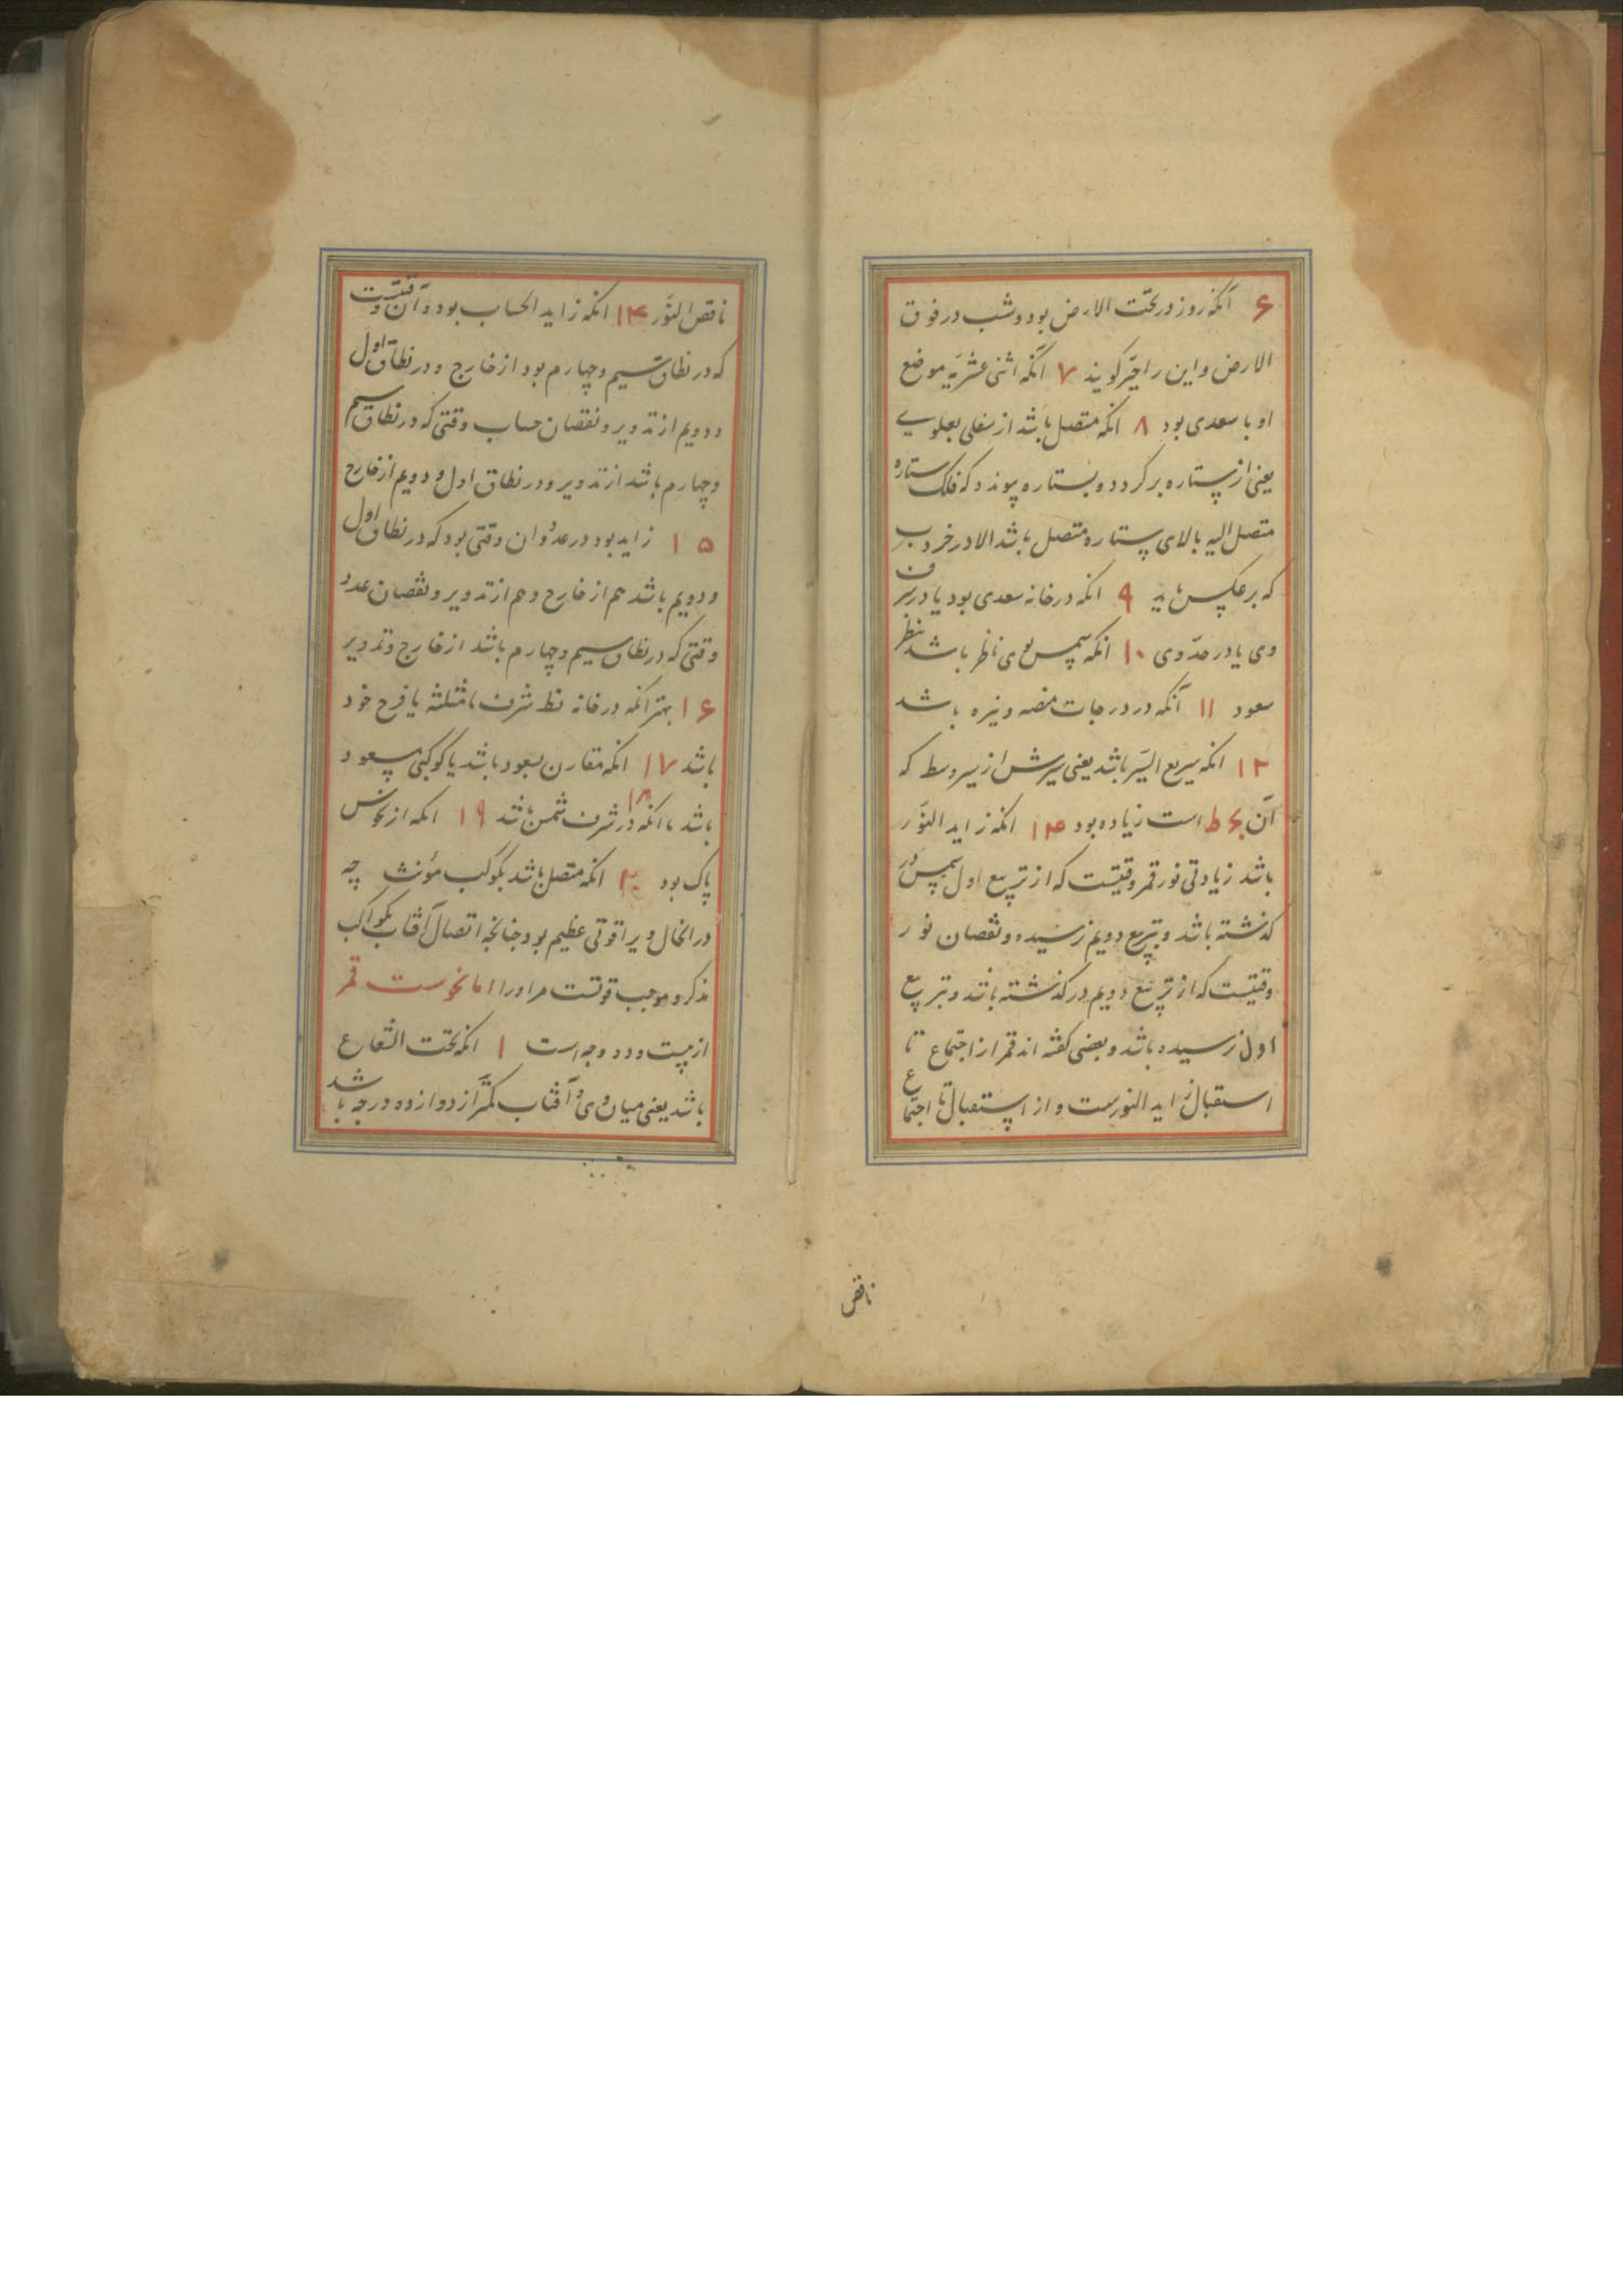 ۶ آنکه روز در تحت الارض بود و شب در فوق
الارض و این را حیّز کویند ۷ آنکه اثنی عشریّه موضع
او با سعدی بود ۸ انکه متصل باشد از سفلی بعلویے
یعنی از ستاره برکردد و بستاره پیوندد که فلک ستاره
متصل الیه بالای ستاره متصل باشد الا در خروب
که برعکس باید ۹ انکه در خانه سعدی بود یا در شرف
وی یا در حدّ وی ۱۰ انکه شمس بوی ناظر باشد بنظر
سعود ۱۱ آنکه در درجات مضیه و نیره باشد
۱۲ انکه سریع السیر باشد یعنی سیرش از سیر وسط که
آن یح ط است زیاده بود ۱۳ انکه زاید النوّر
باشد زیادتی نور قمر وقتیست که از تربیع اول شمس در
کذشته باشد و بتربیع دویم نرسیده و نقصان نور
وقتیست که از تربیع دویم در کذشته باشد و بتربیع
اول نرسیده باشد و بعضی کفته اند قمر از اجتماع تا
استقبال زاید النورست و از استقبال تا اجتماع
ناقص
ناقص النوّر ۱۴ انکه زاید الحساب بود و آن وقتیست
که در نطاق سیم و چهارم بود از خارج و در نطاق اول
و دویم از تدویر و نقصان حساب وقتی که در نطاق سیم
و چهارم باشد از تدویر و در نطاق اول و دویم از خارج
۱۵ زاید بود در عدد و ان وقتی بود که در نطاق اول
و دویم باشد هم از خارج و هم از تدویر و نقصان عدد
وقتی که در نطاق سیم و چهارم باشد از خارج و تدویر
۱۶ بهتر انکه در خانه شرف یا مثلثه یا فرح خود
باشد ۱۷ انکه مقارن سعود باشد یا کوکبی مسعود
باشد ۱۸ یا انکه در شرف شمس باشد ۱۹ انکه از نحوس
پاک بود ۲۰ انکه متصل باشد بکوکب مؤنث چه
در انحال ویرا قوتی عظیم بود چنانچه اتصال آفتاب بکواکب
مذکر و موجب قوتست مر او را اما نحوست قمر
از بیست و دو وجه است ۱ انکه تحت الشعاع
باشد یعنی میان وی و آفتاب کمتر از دوازده درجه باشد